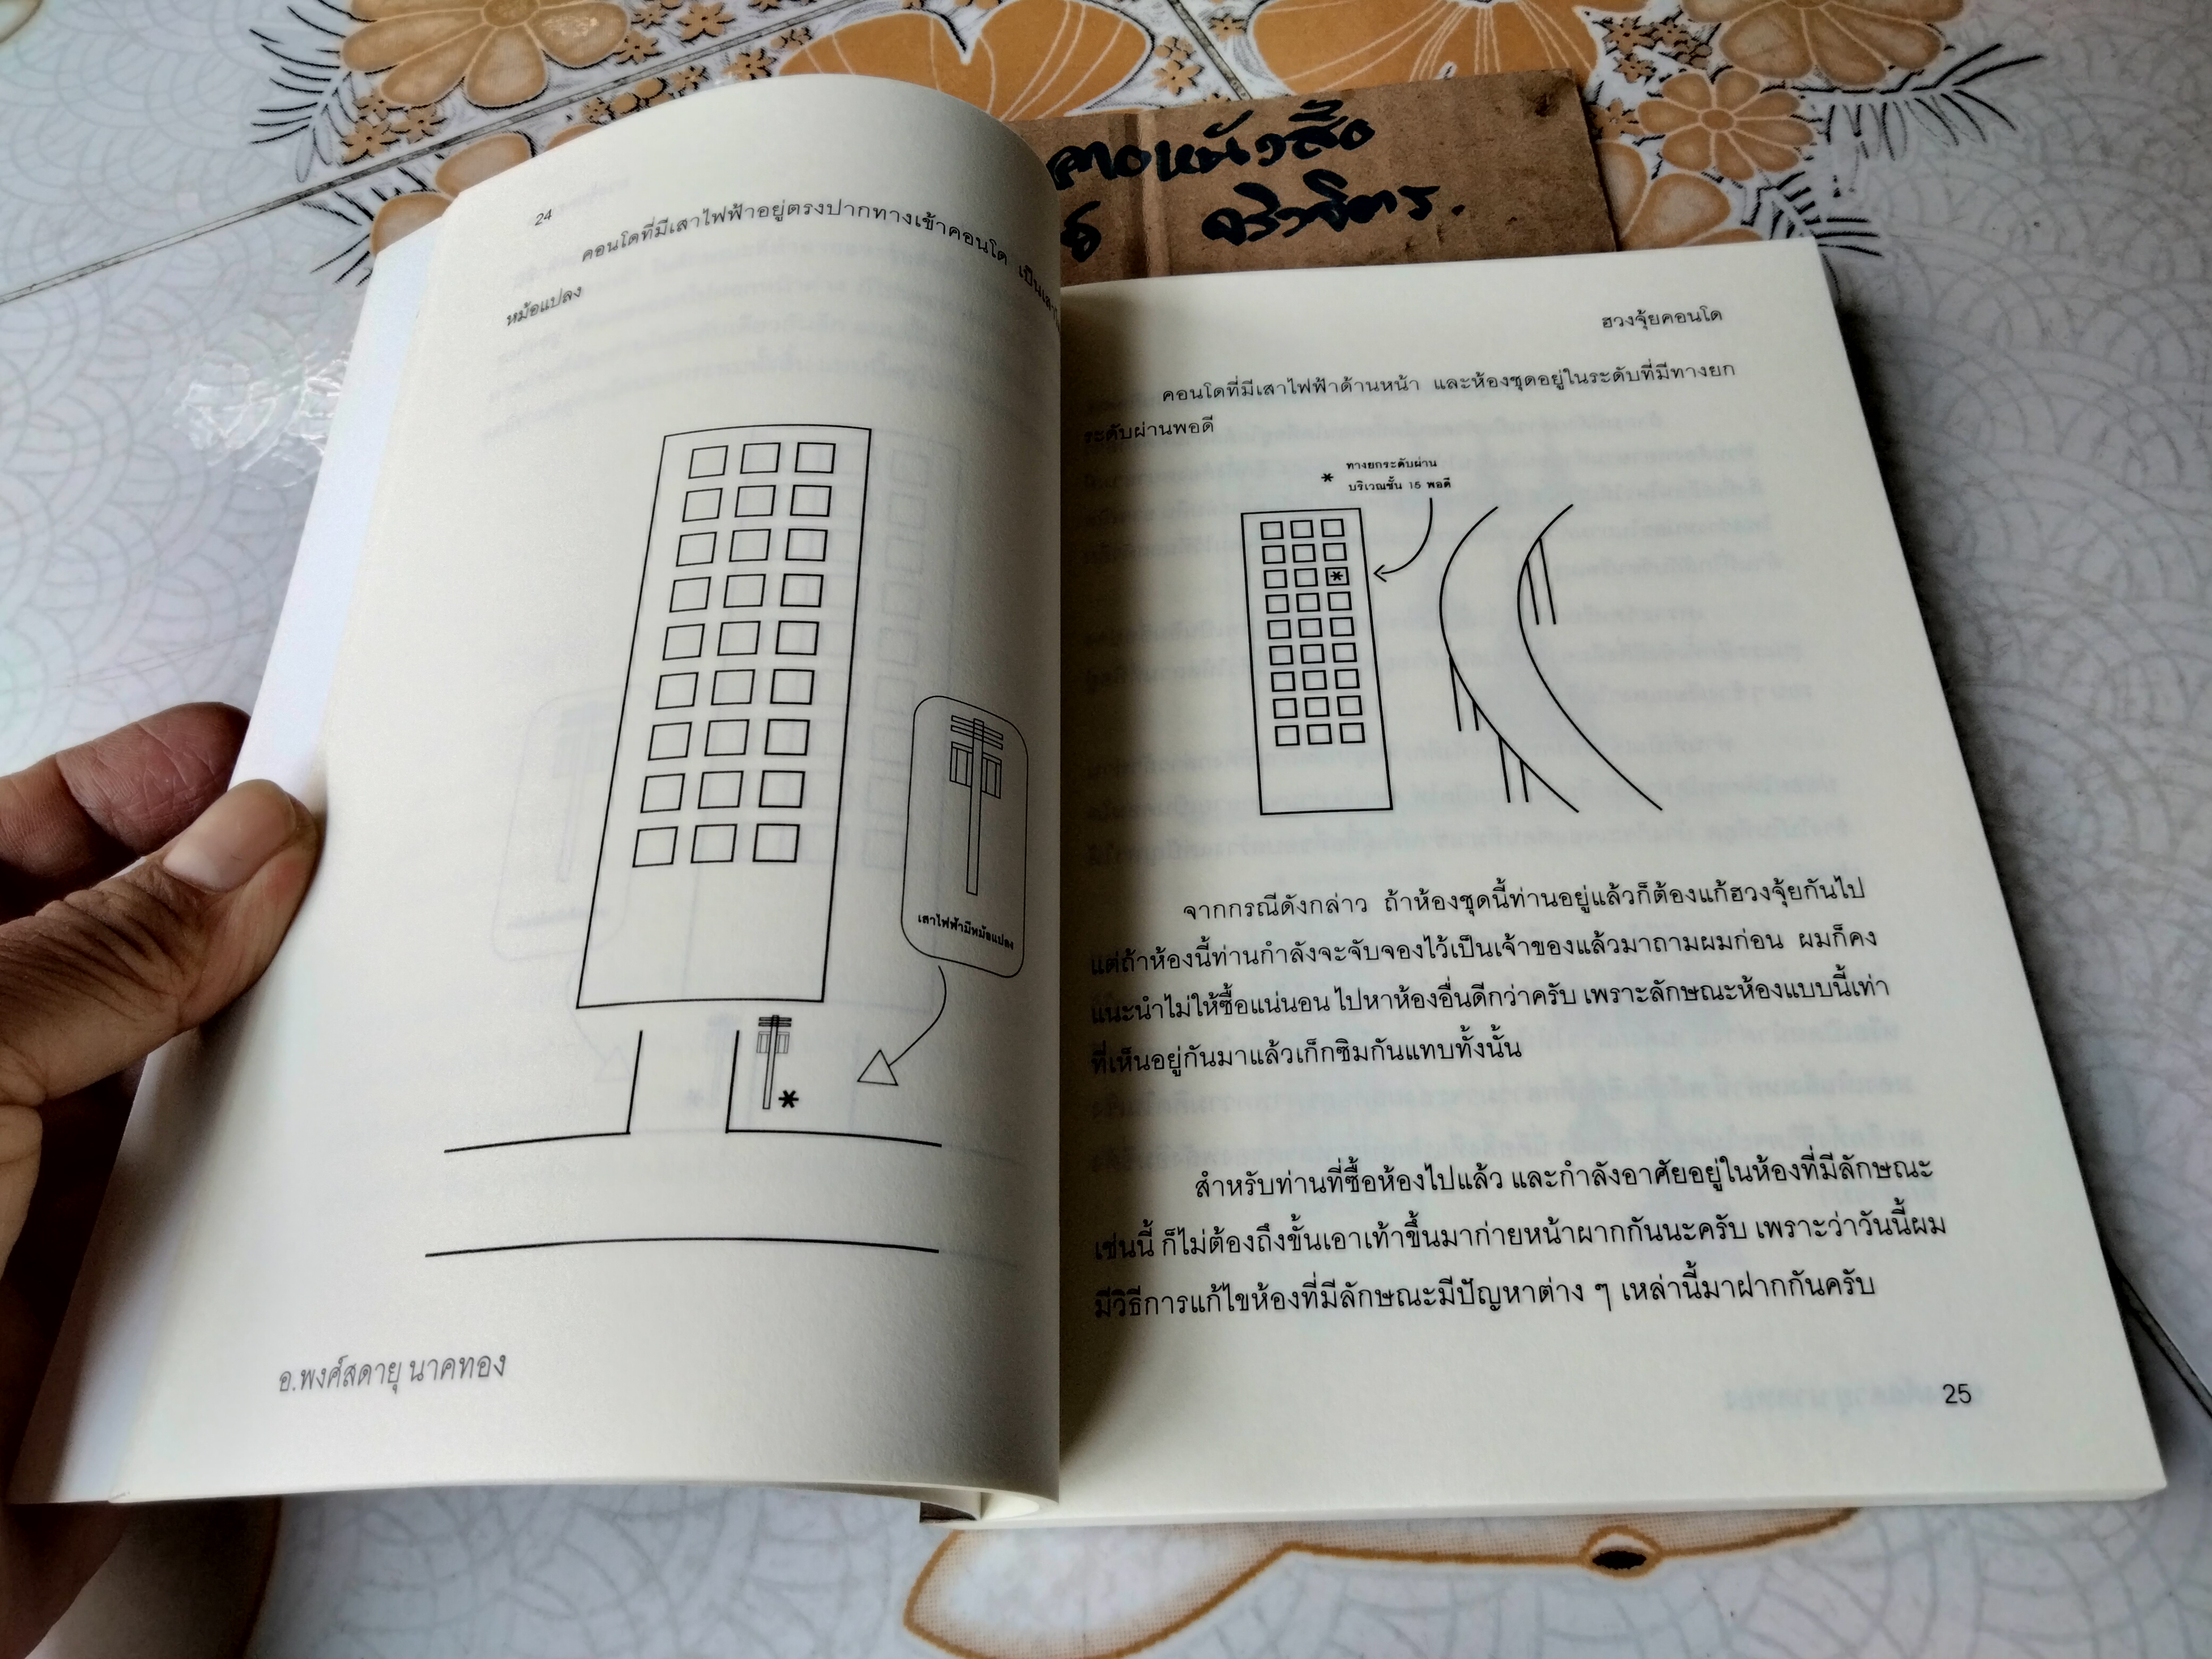 24
คอนโดที่มีเสาไฟฟ้าอยู่ตรงปากทางเข้าคอนโด เป็นเสา
หม้อแปลง
เสาไฟฟ้ามีหม้อแปลง
*
อ.พงศ์สดายุ นาคทอง
ฮวงจุ้ยคอนโด
คอนโดที่มีเสาไฟฟ้าด้านหน้า และห้องชุดอยู่ในระดับที่มีทางยก
ระดับผ่านพอดี
* ทางยกระดับผ่าน
บริเวณชั้น 15 พอดี
*
จากกรณีดังกล่าว ถ้าห้องชุดนี้ท่านอยู่แล้วก็ต้องแก้ฮวงจุ้ยกันไป
แต่ถ้าห้องนี้ท่านกำลังจะจับจองไว้เป็นเจ้าของแล้วมาถามผมก่อน ผมก็คง
แนะนำไม่ให้ซื้อแน่นอน ไปหาห้องอื่นดีกว่าครับ เพราะลักษณะห้องแบบนี้เท่า
ที่เห็นอยู่กันมาแล้วเก็กซิมกันแทบทั้งนั้น
สำหรับท่านที่ซื้อห้องไปแล้ว และกำลังอาศัยอยู่ในห้องที่มีลักษณะ
เช่นนี้ ก็ไม่ต้องถึงขั้นเอาเท้าขึ้นมาก่ายหน้าผากกันนะครับ เพราะว่าวันนี้ผม
มีวิธีการแก้ไขห้องที่มีลักษณะมีปัญหาต่าง ๆ เหล่านี้มาฝากกันครับ
25